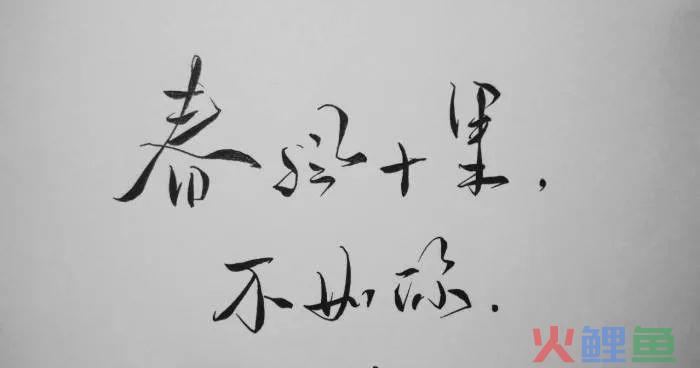 春风十里,
不如你.
火鲤鱼